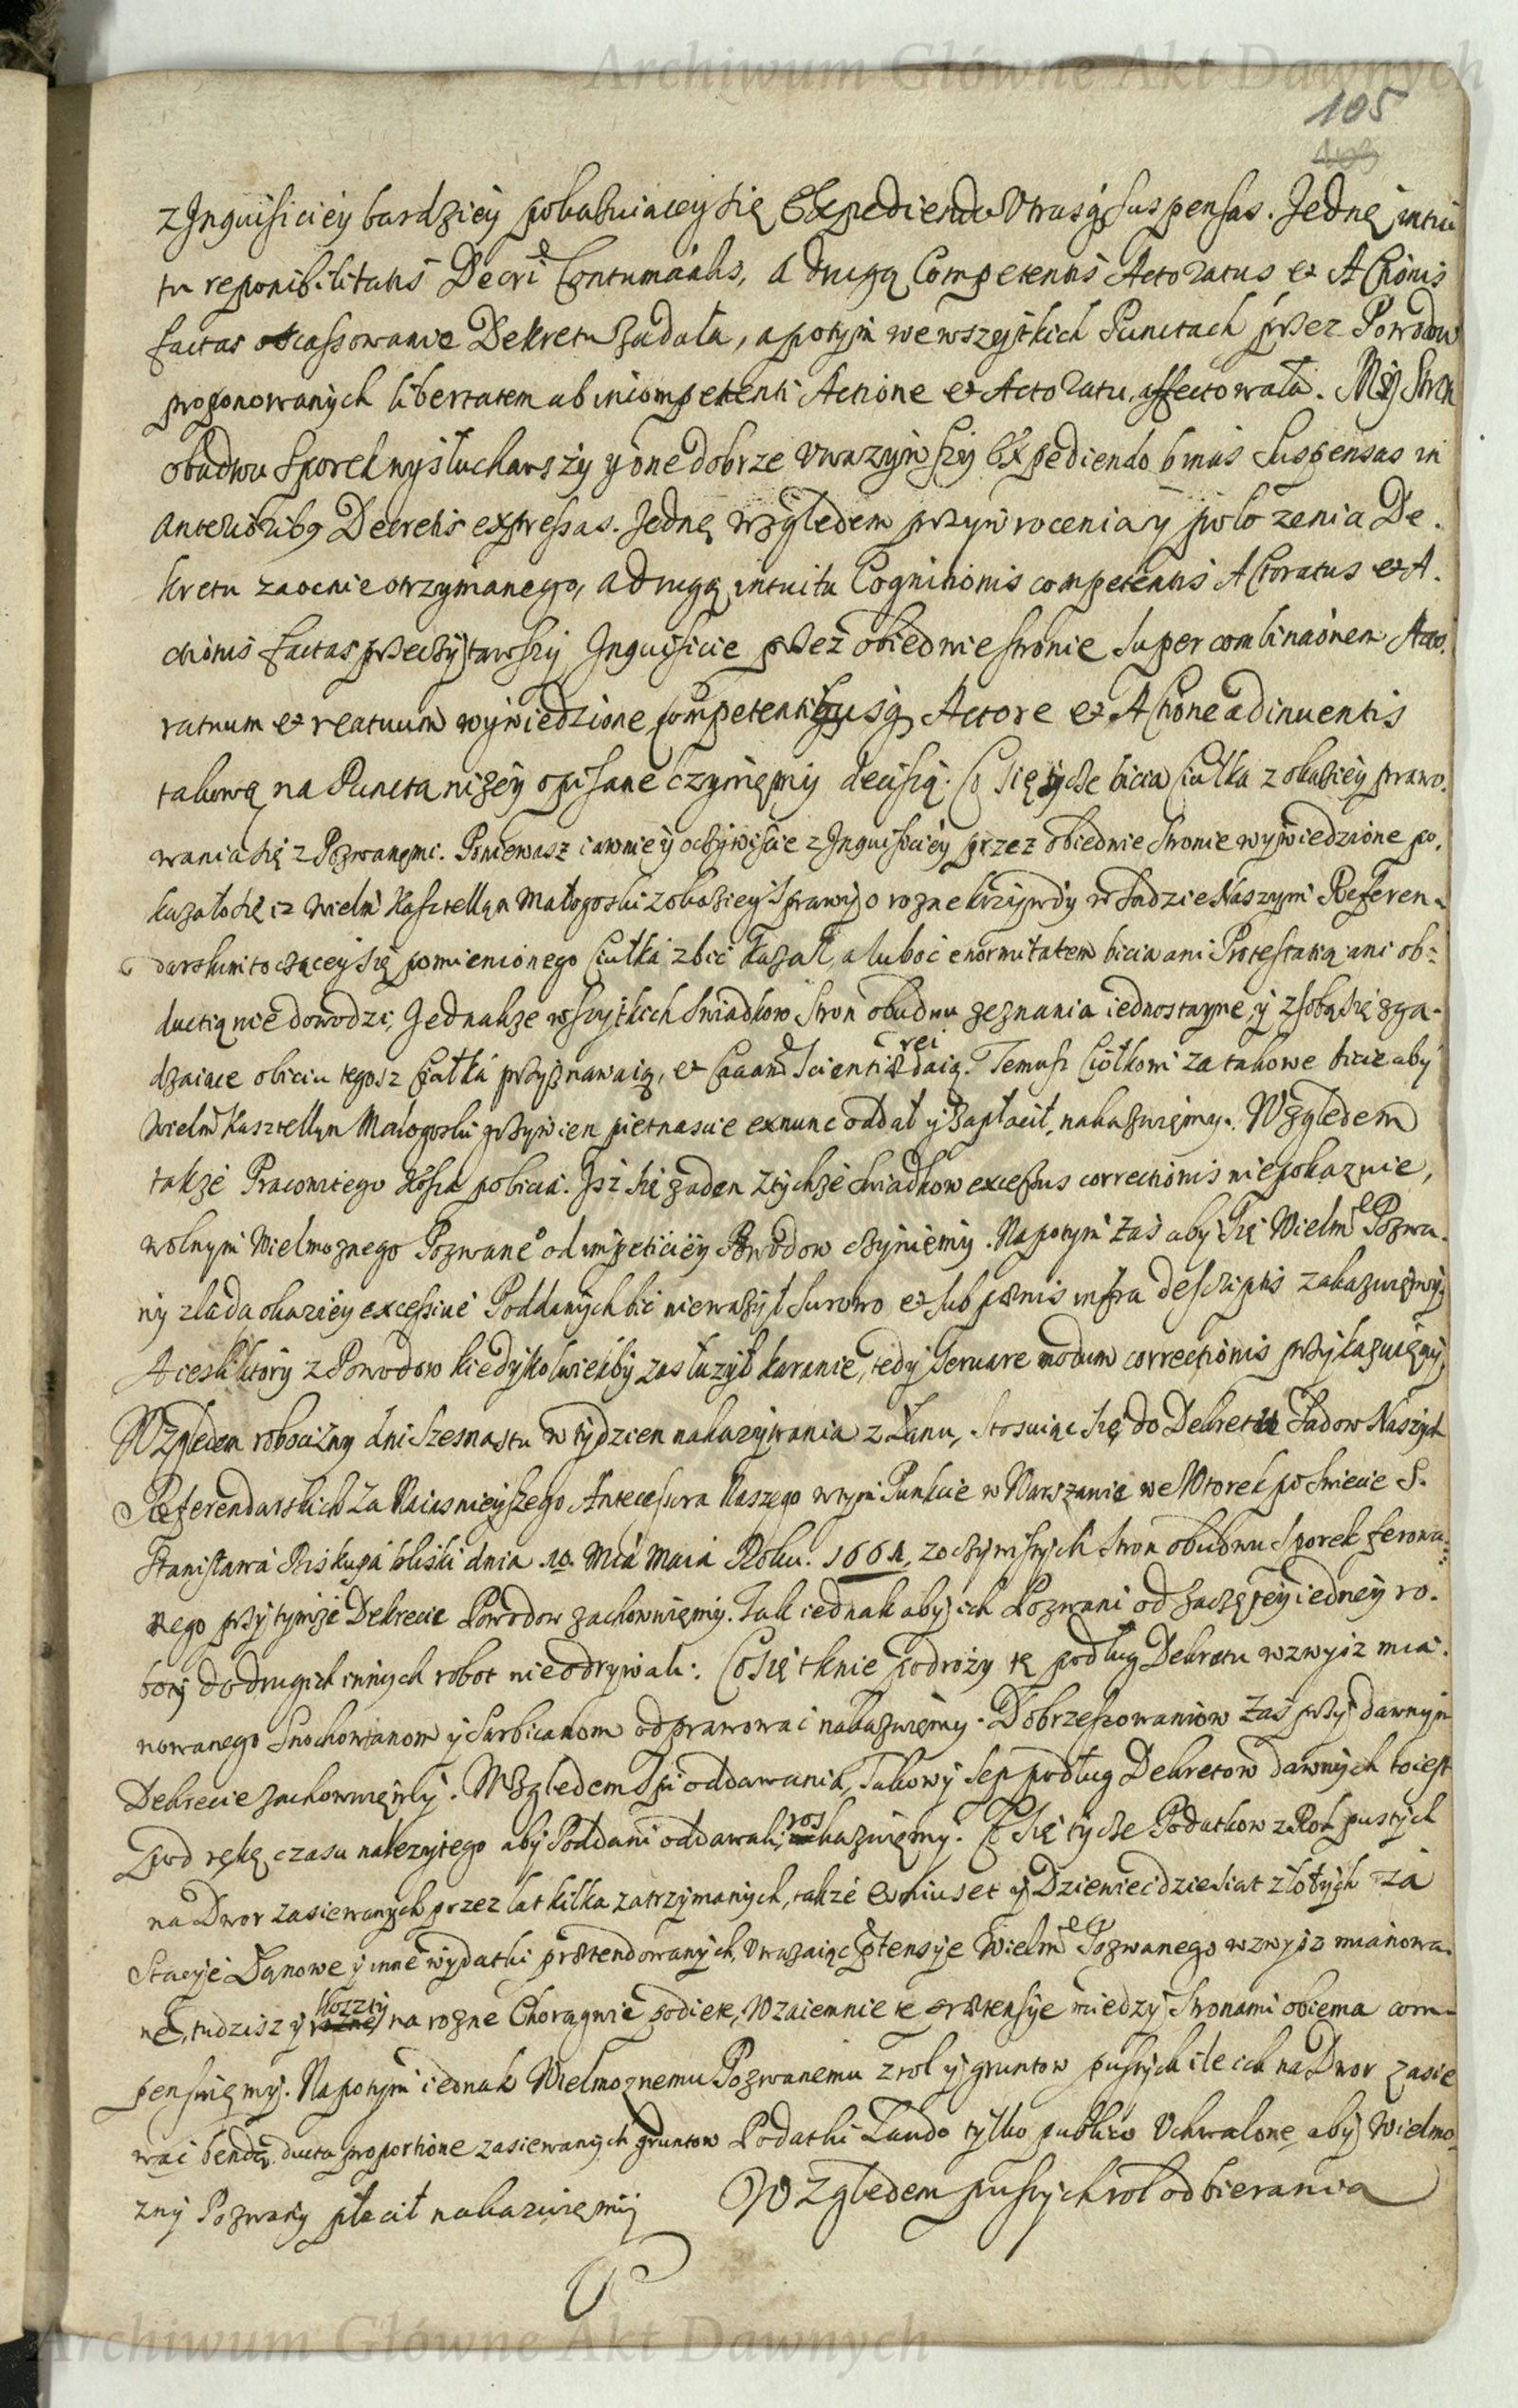 Archiwum Główne Akt Dawnych
105
z Inquisiciey bardziey pokazuiącey się Expediendo Utrasq suspensas. Jednę intui
tu reponibilitatis Decri Contumatis, a drugą Competentis Actoratus et Actionis
factas o scassowanie Dekretu żądała, a potym we wszystkich Punctach przez Powodow
proponowanych libertatem ab incompetenti Actione et Actoratu affectowała. My Stron
obudwu Sporek wysłuchawszy y one dobrze uwazywszy Expediendo binas Suspensas in
anterioribq Decretis expressas. Jednę względem przywrocenia y polozenia De-
kretu zaocnie otrzymanego, a drugą intuitu Cognitionis competentis Actoratus et A-
ctionis factas przeczytawszy Inquisicie przez obiedwie stronie super combinaonem Acto-
ratuum et reatuum wywiedzione, competentibusq Actore et Actione adinventis
takową na Puncta nizey opisane czyniemy decisią. Co się tycze bicia Ciołka z okaziey prawo-
wania się z Pozwanęmi. Poniewasz iawnie y oczywiscie z Inquisiciey przez obiedwie stronie wywiedzione po-
kazało się iz Wielm Kasztellan Małogoski z okaziey sprawy o rozne krzywdy w Sądzie Naszym Referen-
darskim toczącey się pomienionego Ciołka zbić kazał, a luboć enormitatem bicia ani Protestatią ani ob-
ductią nie dowodzi, Jednakze wszystkich swiadkow stron obudwu zeznania iednostayne y z sobą się zga-
dzaiące obiciu tegosz Ciołka przyznawaią, et Caaam Scientiae rei daią. Temusz Ciołkowi za takowe bicie aby
Wielm Kasztellan Małogoski grzywien pietnascie exnunc oddał y zapłacił, nakazuięmy. Względem
takze Pracowitego Kosia pobicia. Isz się zaden z tychze swiadkow excessus correctionis nie pokazuie,
wolnym Wielmoznego Pozwane⁰ od impeticiey Powodow czyniemy. Na potym zas aby się Wielm Pozwa-
ny z lada okaziey excessive Poddanych bić niewazył surowo et sub poenis infra descriptis zakazuięmy
A iesli ktory z Powodow kiedykolwiekby zasłuzył karanie, tedy servare modum correctionis przykazuięmy,
Względem robocizny dni szesnastu w tydzien nakazywania z Łanu, stosuiąc się do Dekretu Sądow Naszych
Referendarskich za Naiasnieyszego Antecessora Naszego w tym Punkcie w Warszawie we Wtorek po Swiecie S.
Stanisława Biskupa bliski dnia 10. Mca Maia Roku. 1661, z oczywistych stron obudwu sporek ferowa-
nego przy tymze Dekrecie Powodow zachowuięmy. Tak iednak aby ich Pozwani od zaczętey iedney ro-
boty do drugich innych robot nie odrywali. Co się tknie podrozy tę podług Dekretu wzwysz mia-
nowanego Snochowianom y Sarbicanom odprawować nakazuięmy. Dobrzeszowaniow zas przy dawnym
Dekrecie zachowuięmy. Względem Spi oddawania, takowy sep podług Dekretow dawnych to iest
Pod rękę czasu nalezytego aby Poddani oddawali roskazuięmy. Co się tycze Podatkow z Rol pustych
na Dwor zasiewanych przez lat kilka zatrzymanych, takze osmiuset y Dziewiecdziesiat złotych za
Stacyie Łanowe y inne wydatki praetendowanych, uwazaiąc ptensyie Wielm Pozwanego wzwysz mianowa-
ne, tudzisz y koszty na rozne Chorągwie podiete, wzaiemnie te praetensyie miedzy stronami obiema com-
pensuięmy. Na potym iednak Wielmoznemu Pozwanemu z rol y gruntow pustych ile ich na Dwor zasie
wac bendą, ducta proportione zasiewanych gruntow Podatki Laudo tylko publico Uchwalone, aby Wielmo-
zny Pozwany płacił nakazuięmy Względem pustych rol odbierania
Archiwum Główne Akt Dawnych